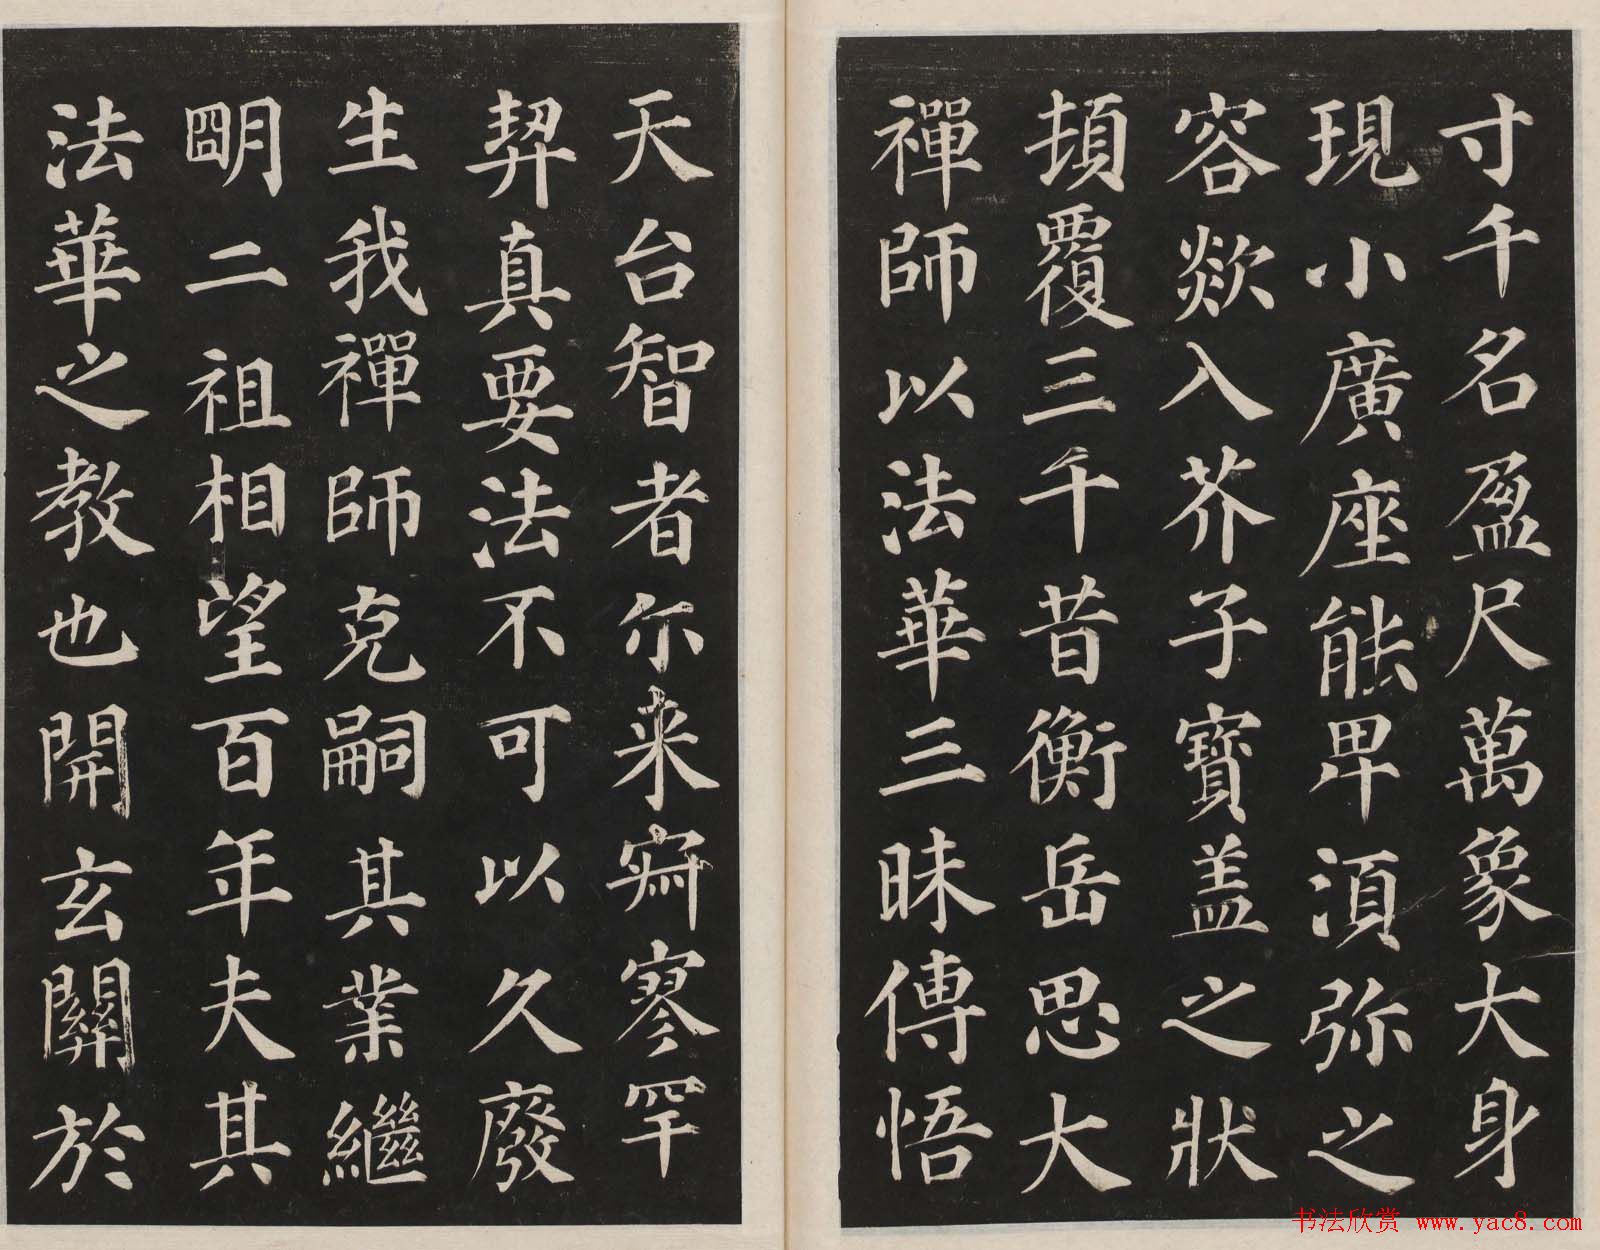 寸千名盈尺萬象大身
現小廣座能卑須弥之
容欻入芥子寳盖之狀
頓覆三千昔衡岳思大
禪師以法華三昧傳悟
天台智者尓来寂寥罕
契真要法不可以久廢
生我禪師克嗣其業繼
明二祖相望百年夫其
法華之教也開玄關於
书法欣赏 www.yac8.com